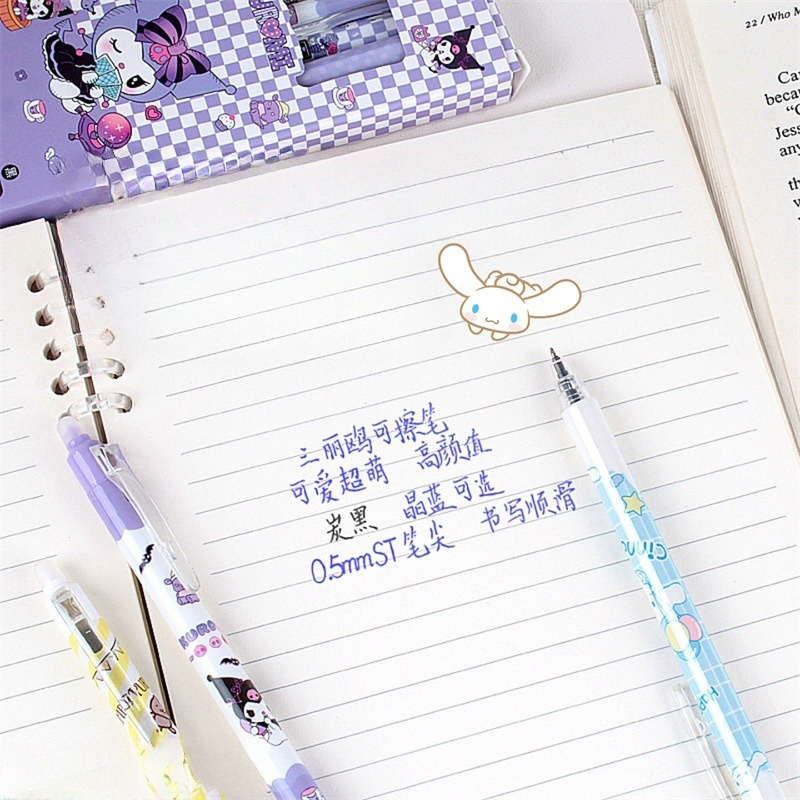 22 / Who M
Ca
becau
"C
Jess
any
th
w
b
三丽鸥可擦笔
可爱超萌 高颜值
炭黑 晶蓝可选 书写顺滑
0.5mmST笔尖
KURO